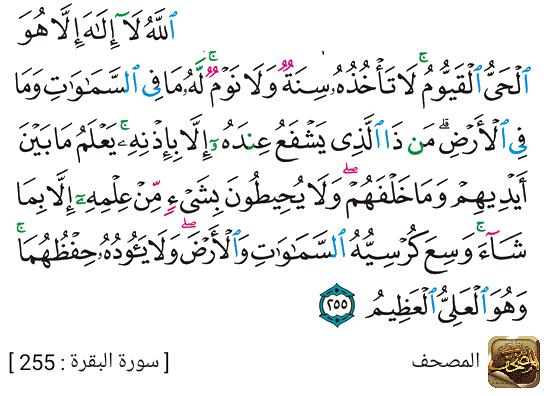 ٱللَّهُ لَآ إِلَـٰهَ إِلَّا هُوَ
ٱلۡحَىُّ ٱلۡقَيُّومُۚ لَا تَأۡخُذُهُۥ سِنَةٌ وَلَا نَوۡمٌۚ لَّهُۥ مَا فِى ٱلسَّمَـٰوَٰتِ وَمَا
فِى ٱلۡأَرۡضِۗ مَن ذَا ٱلَّذِى يَشۡفَعُ عِندَهُۥٓ إِلَّا بِإِذۡنِهِۦۚ يَعۡلَمُ مَا بَيۡنَ
أَيۡدِيهِمۡ وَمَا خَلۡفَهُمۡۖ وَلَا يُحِيطُونَ بِشَىۡءٍ مِّنۡ عِلۡمِهِۦٓ إِلَّا بِمَا
شَآءَۚ وَسِعَ كُرۡسِيُّهُ ٱلسَّمَـٰوَٰتِ وَٱلۡأَرۡضَۖ وَلَا يَـُٔودُهُۥ حِفۡظُهُمَاۚ
وَهُوَ ٱلۡعَلِىُّ ٱلۡعَظِيمُ ٢٥٥
المصحف [ سورة البقرة : 255 ]
المصحف